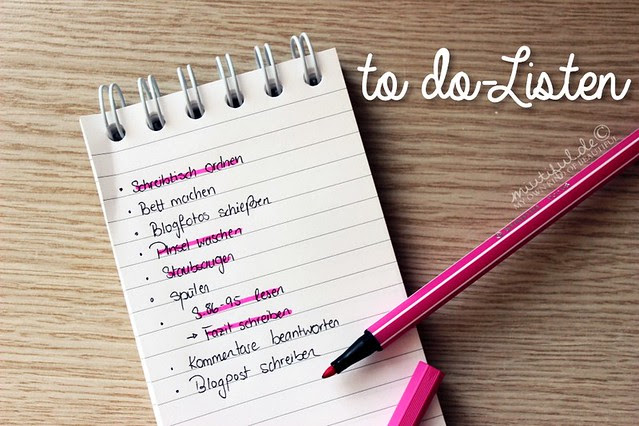 to do-Listen
muntiful.de©
• Schreibtisch ordnen
• Bett machen
• Blogfotos schießen
• Pinsel waschen
• Staubsaugen
• Spülen
• S.86-95 lesen
→ Fazit schreiben
• Kommentare beantworten
• Blogpost schreiben